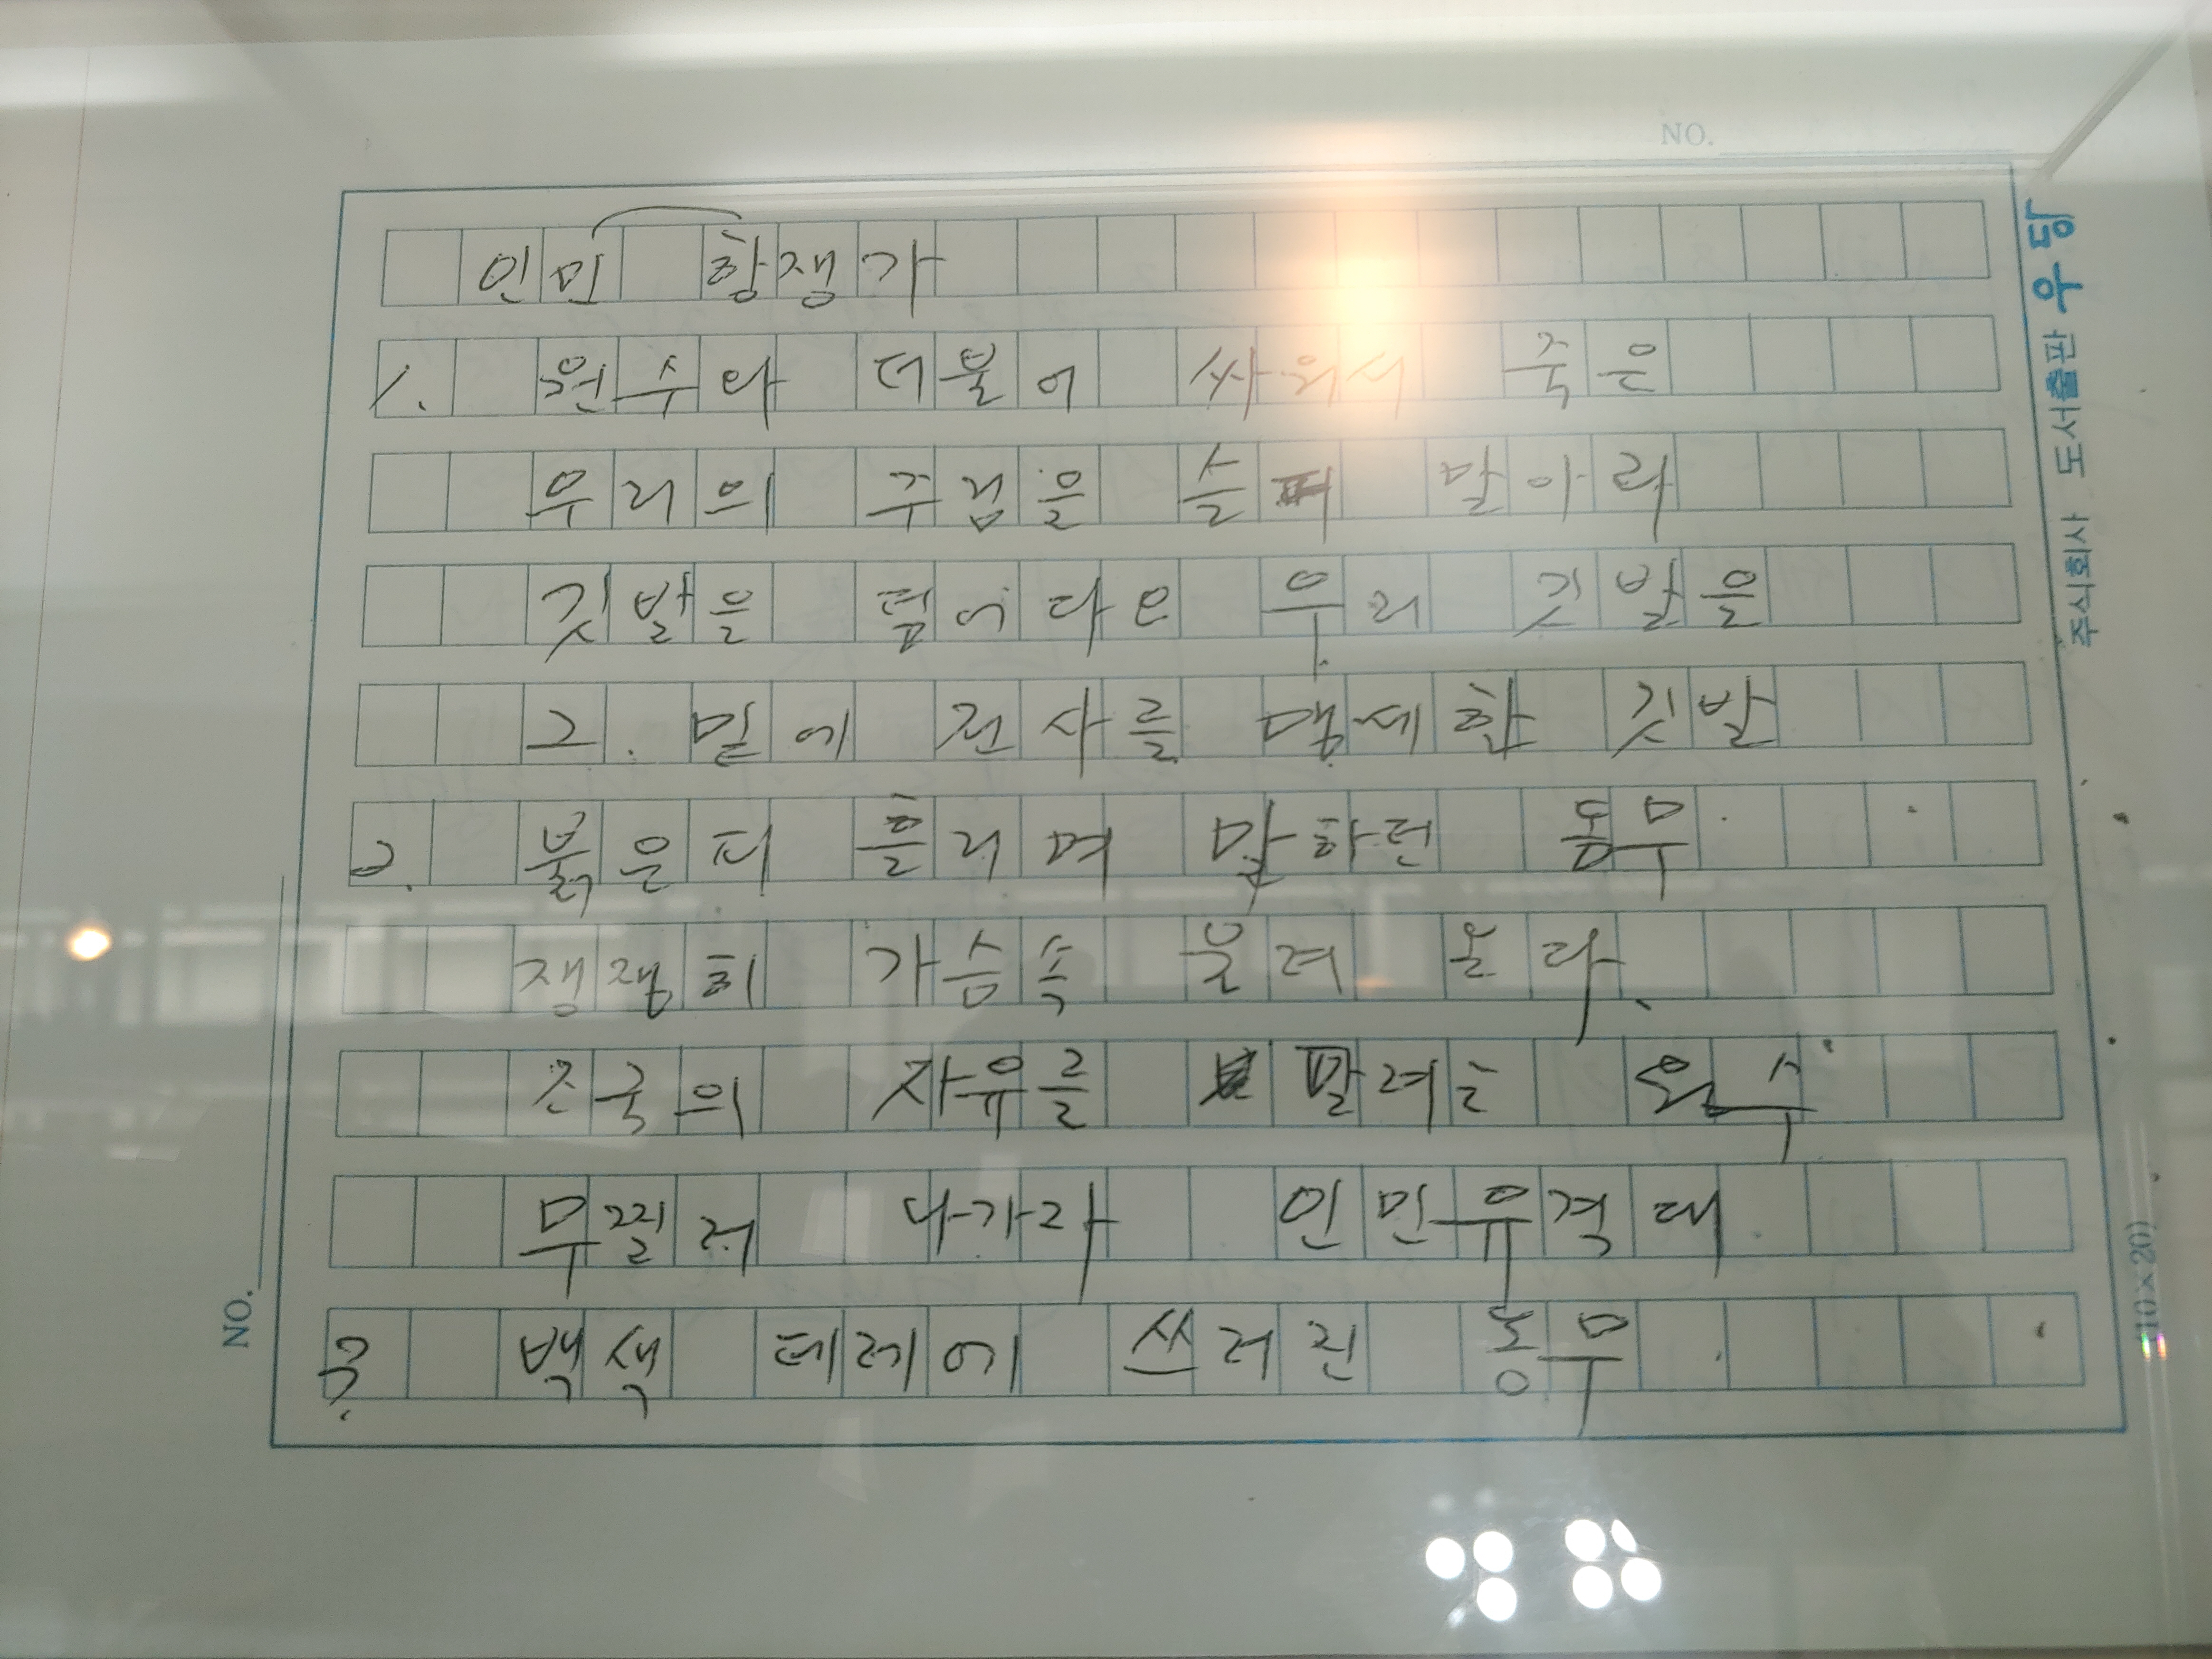 NO.
인민 항쟁가
1. 원수와 더불어 싸워서 죽은
우리의 주검을 슬퍼 말아라
깃발을 덮어다오 우리 깃발을
그 밑에 전사를 맹세한 깃발
2. 붉은피 흘리며 말하던 동무
쟁쟁히 가슴속 울려 온다.
조국의 자유를 팔려는 원수
무찔러 나가라 인민유격대
3. 백색 테레에 쓰러진 동무
NO.
주식회사 도서출판 남우
(10×20)